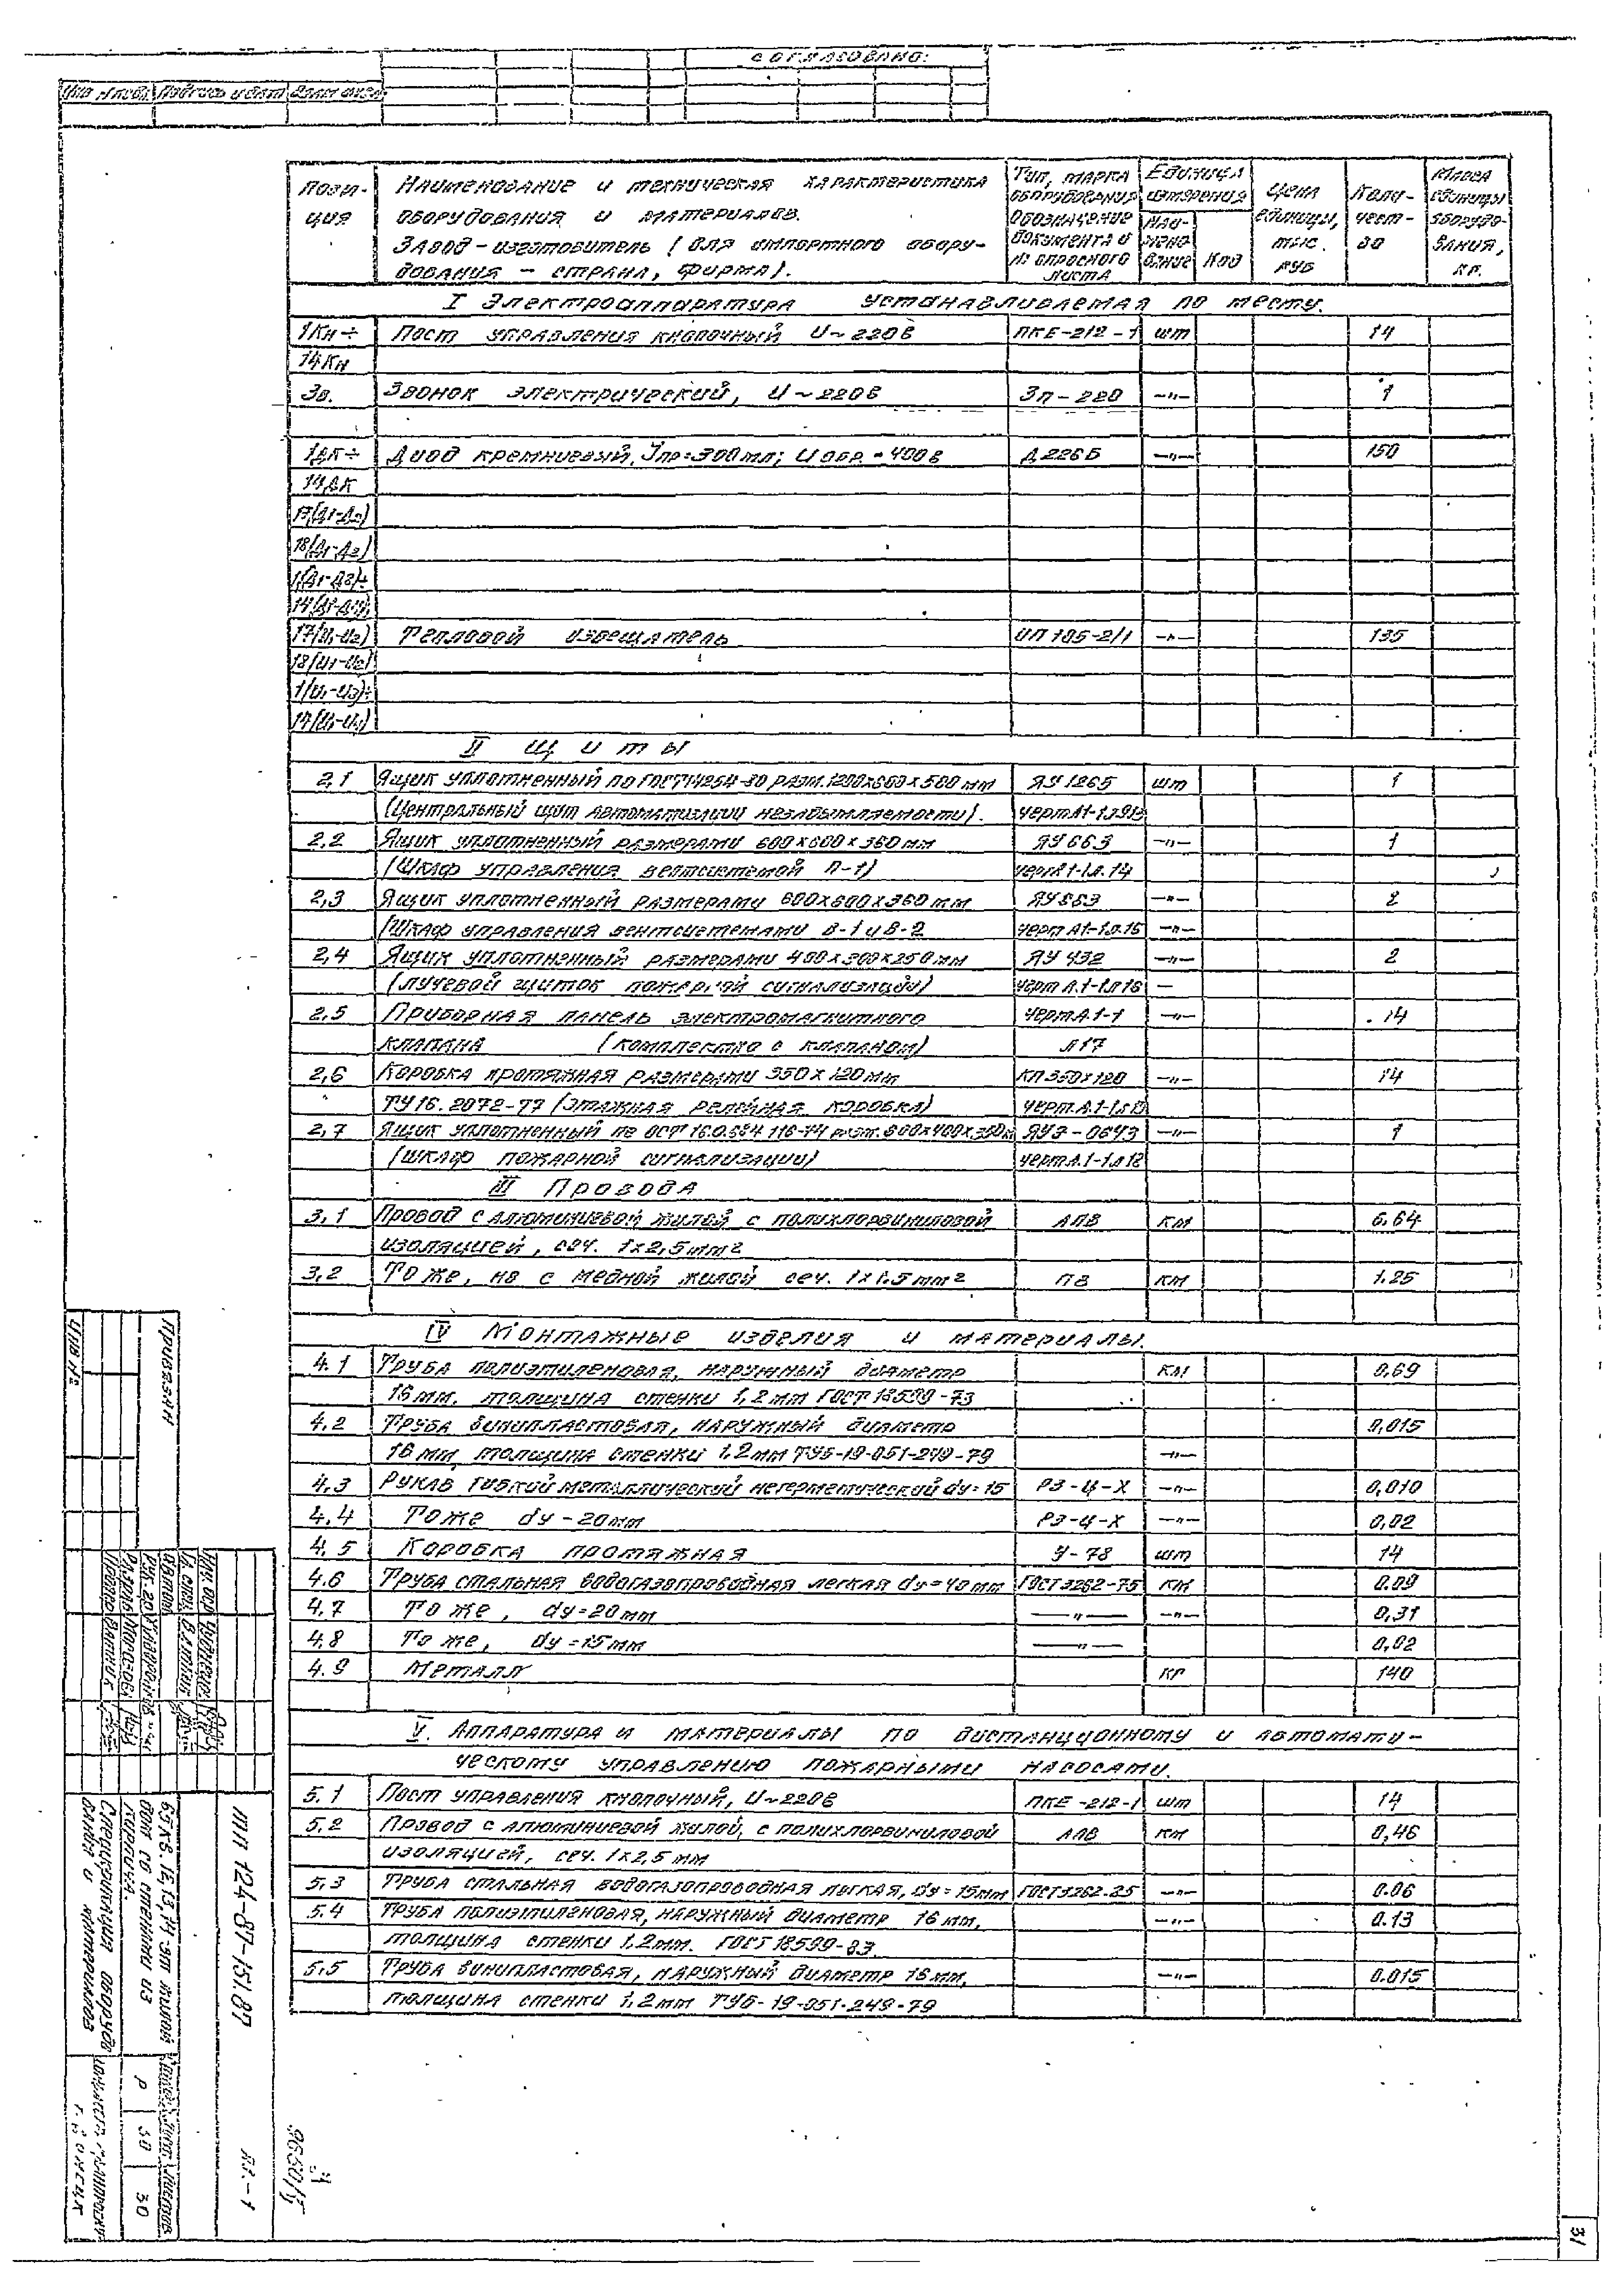 СОГЛАСОВАНО:
Инв № подл. Подпись и дата Взам инв.№
Пози- Наименование и техническая характеристика Тип, марка Единица Цена Коли- Масса
ция оборудования и материалов. оборудования измерения единицы, чест- единицы
Завод-изготовитель (для импортного обору- обозначение Наи- Код тыс. во оборудо-
дования - страна, фирма). документа и № опросного листа мено- вание руб вания, кг.
I Электроаппаратура устанавливаемая по месту.
1Кн÷ Пост управления кнопочный U~220в ПКЕ-212-1 шт 14
14Кн
Зв. Звонок электрический, U~220в Зп-220 —"— 1
1ДК÷ Диод кремниевый, Jпр=300мл; U обр.=400в Д226Б —"— 150
14ДК
17(Д1-Д2)
18(Д1-Д2)
1(Д1-Д3)÷
17(И1-И2) Тепловой извещатель ИП 105-2/1 —"— 135
18(И1-И2)
1(И1-И3)÷
II Щиты
2,1 Ящик уплотненный по ГОСТ 14254-80 разм. 1200х600х500мм ЯУ 1265 шт 1
(Центральный щит автоматизации незадымляемости).
2,2 Ящик уплотненный размерами 600х600х360мм ЯУ 663 —"— 1
(Шкаф управления вентсистемой П-1) черт А1-1л.14
2,3 Ящик уплотненный размерами 600х600х360мм —"— 2
(Шкаф управления вентсистемами В-1 и В-2 черт А1-1л.15 —"—
2,4 Ящик уплотненный размерами 400х300х250мм ЯУ 432 —"— 2
(лучевой щиток пожарной сигнализации) черт А.1-1л16 —
2,5 Приборная панель электромагнитного черт А.1-1 —"— 14
клапана (комплектно с клапаном) л17
2,6 Коробка протяжная размерами 350х120мм КП350х120 —"— 14
ТУ16.2072-77 (этажная релейная коробка)
2,7 Ящик уплотненный по ОСТ 16.0.684.116-74 разм. 600х400х350м ЯУЭ-0643 —"— 1
(шкаф пожарной сигнализации) черт А.1-1л18
III Провода
3,1 Провод с алюминиевой жилой с полихлорвиниловой АПВ км 6,64
изоляцией, сеч. 1х2,5мм²
3,2 То же, но с медной жилой сеч. 1х1,5мм² ПВ км 1.25
IV Монтажные изделия и материалы.
4.1 Труба полиэтиленовая, наружный диаметр км 0,69
16мм, толщина стенки 1,2мм ГОСТ 18599-73
4.2 Труба винипластовая, наружный диаметр 0,015
16мм, толщина стенки 1,2мм ТУ6-19-051-249-79 —"—
4.3 Рукав гибкий металлический негерметический dу=15 РЗ-Ц-Х —"— 0,010
4.4 То же dу-20мм РЗ-Ц-Х —"— 0,02
4.5 Коробка протяжная У-78 шт 14
4.6 Труба стальная водогазопроводная легкая dу=40мм ГОСТ 3262-75 км 0.09
4.7 То же, dу=20мм —"— —"— 0,31
4.8 То же, dу=15мм —"— 0,02
4.9 Металл кг 140
V. Аппаратура и материалы по дистанционному и автомати-
ческому управлению пожарными насосами.
5.1 Пост управления кнопочный, U~220в ПКЕ-212-1 шт 14
5.2 Провод с алюминиевой жилой, с полихлорвиниловой АПВ км 0,46
изоляцией, сеч. 1х2,5мм
5.3 Труба стальная водогазопроводная легкая, dу=15мм ГОСТ 3262-25 —"— 0.06
5.4 Труба полиэтиленовая, наружный диаметр 16мм, —"— 0.13
толщина стенки 1,2мм. ГОСТ 18599-83.
5,5 Труба винипластовая, наружный диаметр 16мм, —"— 0.015
толщина стенки 1,2мм ТУ6-19-051-249-79
Привязан
Инв №
ТП 124-87-151.87 А1-1
65 кв. 12, 13, 14-эт жилой
дом со стенами из
кирпича.
Р 30 30
Спецификация оборудо-
вания и материалов
г. Брянск
31